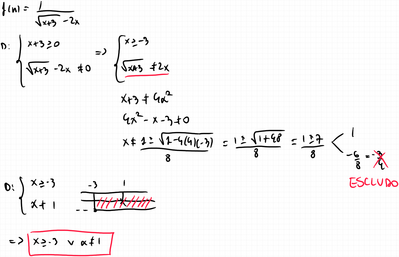 f(n) = 1 / (√x+3 - 2x)
D: { x+3 ≥ 0 => { x ≥ -3
√x+3 - 2x ≠ 0 √x+3 ≠ 2x
x+3 ≠ 4x²
4x² - x - 3 ≠ 0
x ≠ 1 ± √1-4(4)(-3) / 8 = 1 ± √1+48 / 8 = 1 ± 7 / 8 < 1
-6/8 = -3/4
ESCLUDO
D: { x ≥ -3 -3 1
x ≠ 1
=> x ≥ -3 ∨ x ≠ 1